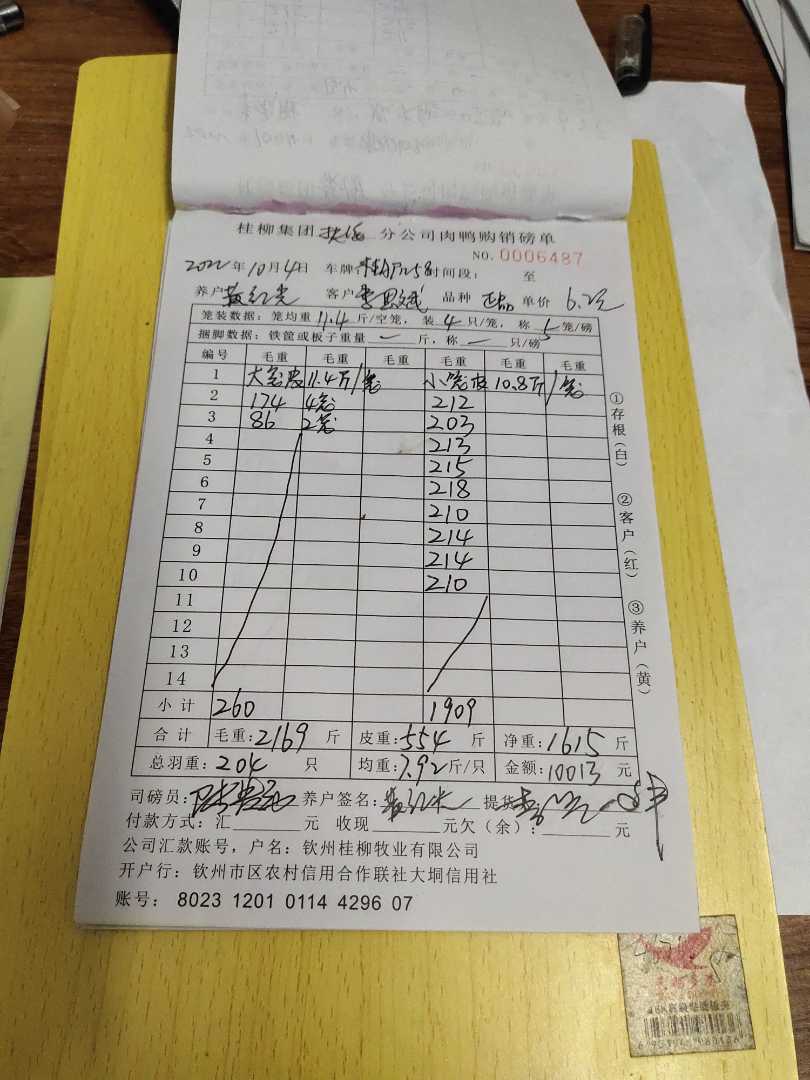 桂柳集团 分公司肉鸭购销磅单
NO. 0006487
2022年10月4日 车牌 258 时间段: 至
养户 黄红光 客户 李 品种 正品 单价 6.2元
笼装数据:笼均重 11.4 斤/空笼,装 4 只/笼,称 5 笼/磅
捆脚数据:铁筐或板子重量 — 斤,称 — 只/磅
编号 毛重 毛重 毛重 毛重 毛重 毛重
1 大笼皮 11.4斤/笼 小笼皮 10.8斤/笼
2 174 4笼 212
3 86 2笼 203
4 213
5 215
6 218
7 210
8 214
9 214
10 210
11
12
13
14
小计 260 1909
合计 毛重:2169 斤 皮重:554 斤 净重:1615 斤
总羽重:204 只 均重:7.92斤/只 金额:10013 元
司磅员: 养户签名: 提货
付款方式:汇 元 收现 元欠(余): 元
公司汇款账号,户名:钦州桂柳牧业有限公司
开户行:钦州市区农村信用合作联社大垌信用社
账号: 8023 1201 0114 4296 07
①存根(白)
②客户(红)
③养户(黄)